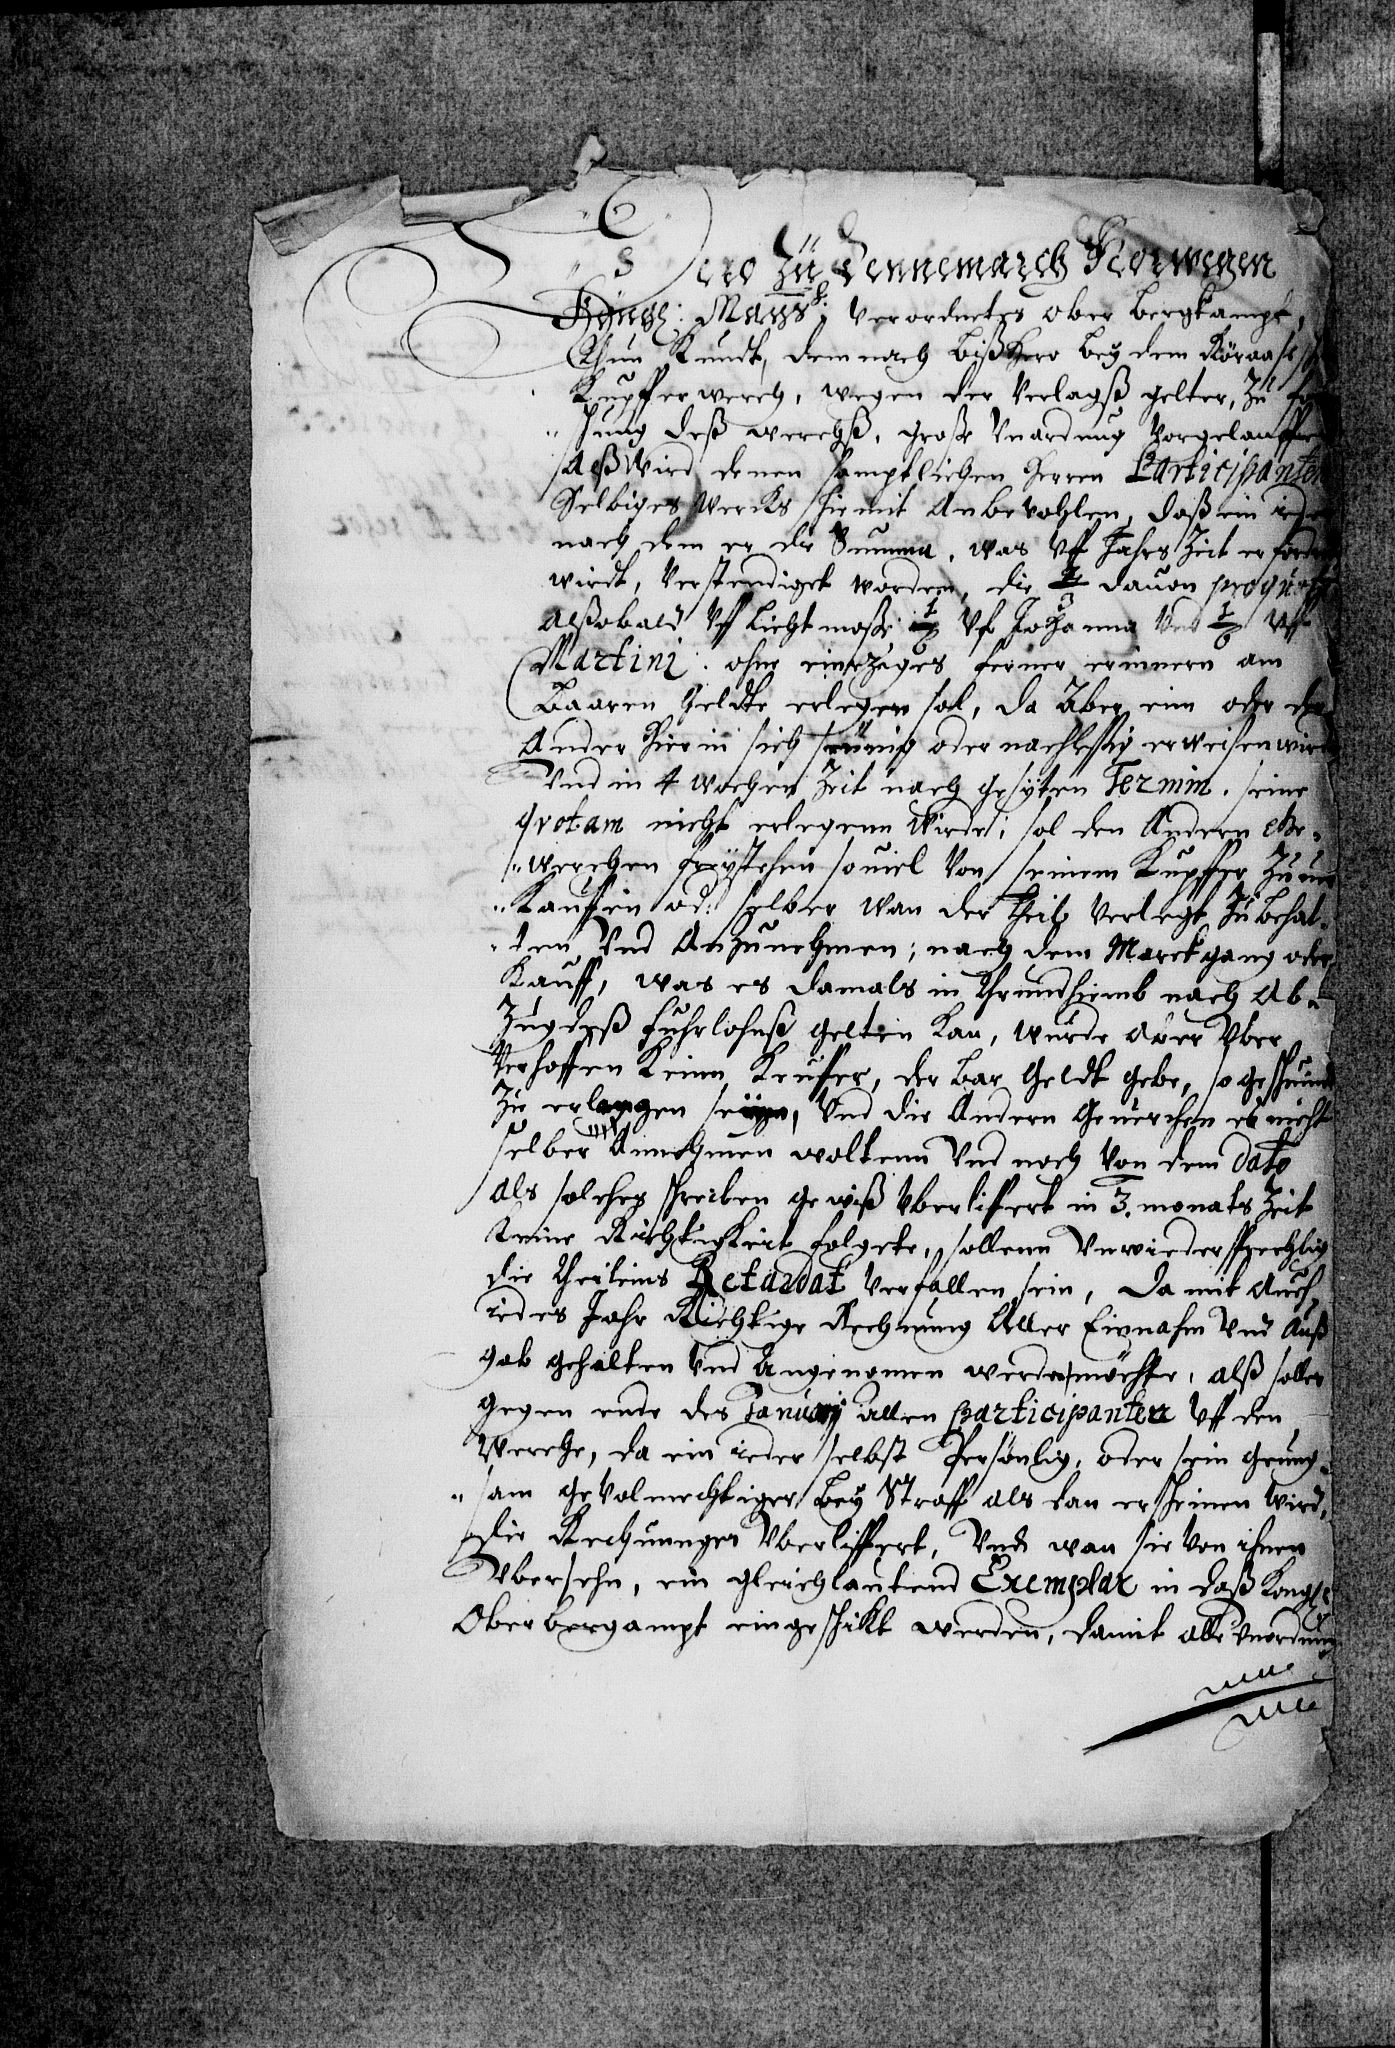 Dero Zu Dennemarch Norwegen
Königl: Mayst: Verordnetes ober Bergkampt,
Thun Kundt, demnach bißhero bey dem Röraaß
Kupfferwerch, wegen der Verlagß gelter, Zu
hung deß werchß, große Unordnug Vorgelauffen
Alß Wird denen samptlichen Herren Participanten
Selbiges Wercks hiemit Anbevohlen, daß ein ieder
nach dem er die Summa, was Uff Jahrs Zeit erfordert
wirdt, Verstendiget worden, die 2/3 dauon pro quota
Alßobald Uff Liechtmeße 1/6 Uff Johanna Und 1/6 Uff
Martini: ohne einziges ferner erinnern am
Baaren Geldte erlegen sol, da Aber ein oder der
Ander hierin sich seumig oder nachlessig erweisen wirdt
Und in 4 wochen Zeit nach gesetzten Termin, seine
quotam nicht erlegenn Wirde; sol den Andern
wercken freystehen souiel Von seinem Kupffer Zu uer
kauffen od: selber wan der Theil Verlegt Zu behal-
ten Und Anzunehmen; nach dem Marckgang oder
Kauff, was es damals in Thrundhiemb nach Ab-
Zug deß fuhrlohnß gelten kan, wurde aber Uber
Verhoffen keinn Keuffer, der bar Geldt gebe, so geschwindt
Zu erlangen sein, Und die Andern Gewercken es nicht
selber Annehmen woltenn Und noch Von dem dato
Als solches schreiben gewiß Uberliffert in 3. monats Zeit
keine Richtigkeit folgete, sollenn Unwiedersprechlig
die Theil ins Retardat Verfallen sein, Da mit Auch
iedes Jahr Richtige Rechnung Aller Einnahm Und Auß
gab gehalten Und Angenomen werden möchte, alß sollen
gegen ende des Januarij allen Participanten Uff den
Wercke, da ein ieder selbst Persönlig, oder sein genug-
sam geVolmechtiger bey Straff als dan erscheinen Wird,
die Rechnungen Uberliffert, Und wan sie Von ihnen
Ubersehn, ein gleichlautend Exemplar in daß Kongl:
Oberbergampt eingeschikt werden, damit alle Unordnung